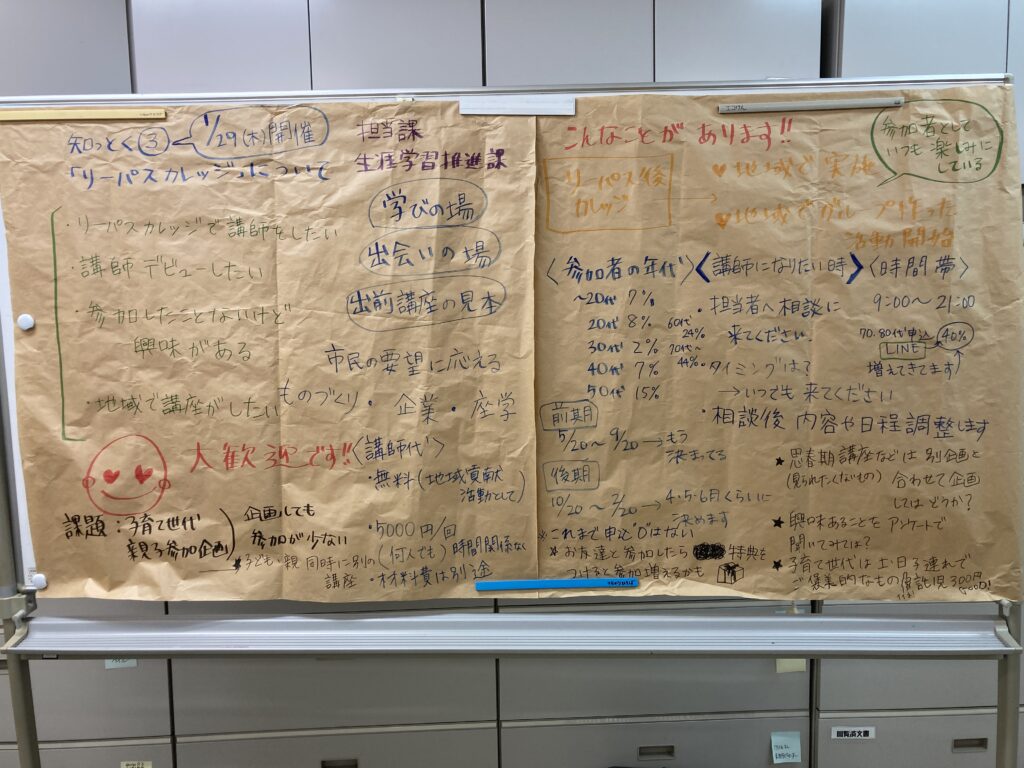 知っとく③ 1/29(木)開催
「リーパスカレッジ」について
担当課
生涯学習推進課
・リーパスカレッジで講師をしたい
・講師デビューしたい
・参加したことないけど
興味がある
・地域で講座がしたい
大歓迎です!!
学びの場
出会いの場
出前講座の見本
市民の要望に応える
ものづくり・企業・座学
〈講師代〉
・無料(地域貢献
活動として)
・5000円/回
(何人でも)時間関係なく
・材料費は別途
課題:子育て世代
親子参加企画
企画しても
参加が少ない
★子ども・親 同時に別の
講座
こんなことが あります!!
参加者として
いつも楽しみに
している
リーパス
カレッジ
後
→
♥地域で実施
♥地域でグループ作った
活動開始
〈参加者の年代〉
~20代 7%
20代 8%
30代 2%
40代 7%
50代 15%
60代
24%
70代~
44%
〈講師になりたい時〉
・担当者へ相談に
来てください
・タイミングは?
→いつでも来てください
・相談後 内容や日程調整します
〈時間帯〉
9:00~21:00
70.80代申込 40%
LINE
増えてきてます
前期
5/20~9/20→もう
決まってる
後期
10/20~2/20→4・5・6月くらいに
決めます
※これまで申込"0"はない
★お友達と参加したら 特典を
つけると参加増えるかも
★思春期講座などは 別企画と
(見られたくないもの) 合わせて企画
してはどうか?
★興味あることを アンケートで
聞いてみては?
★子育て世代は土・日子連れで
ご褒美的なもの 託児 300円
GOOD!
閲覧済文書